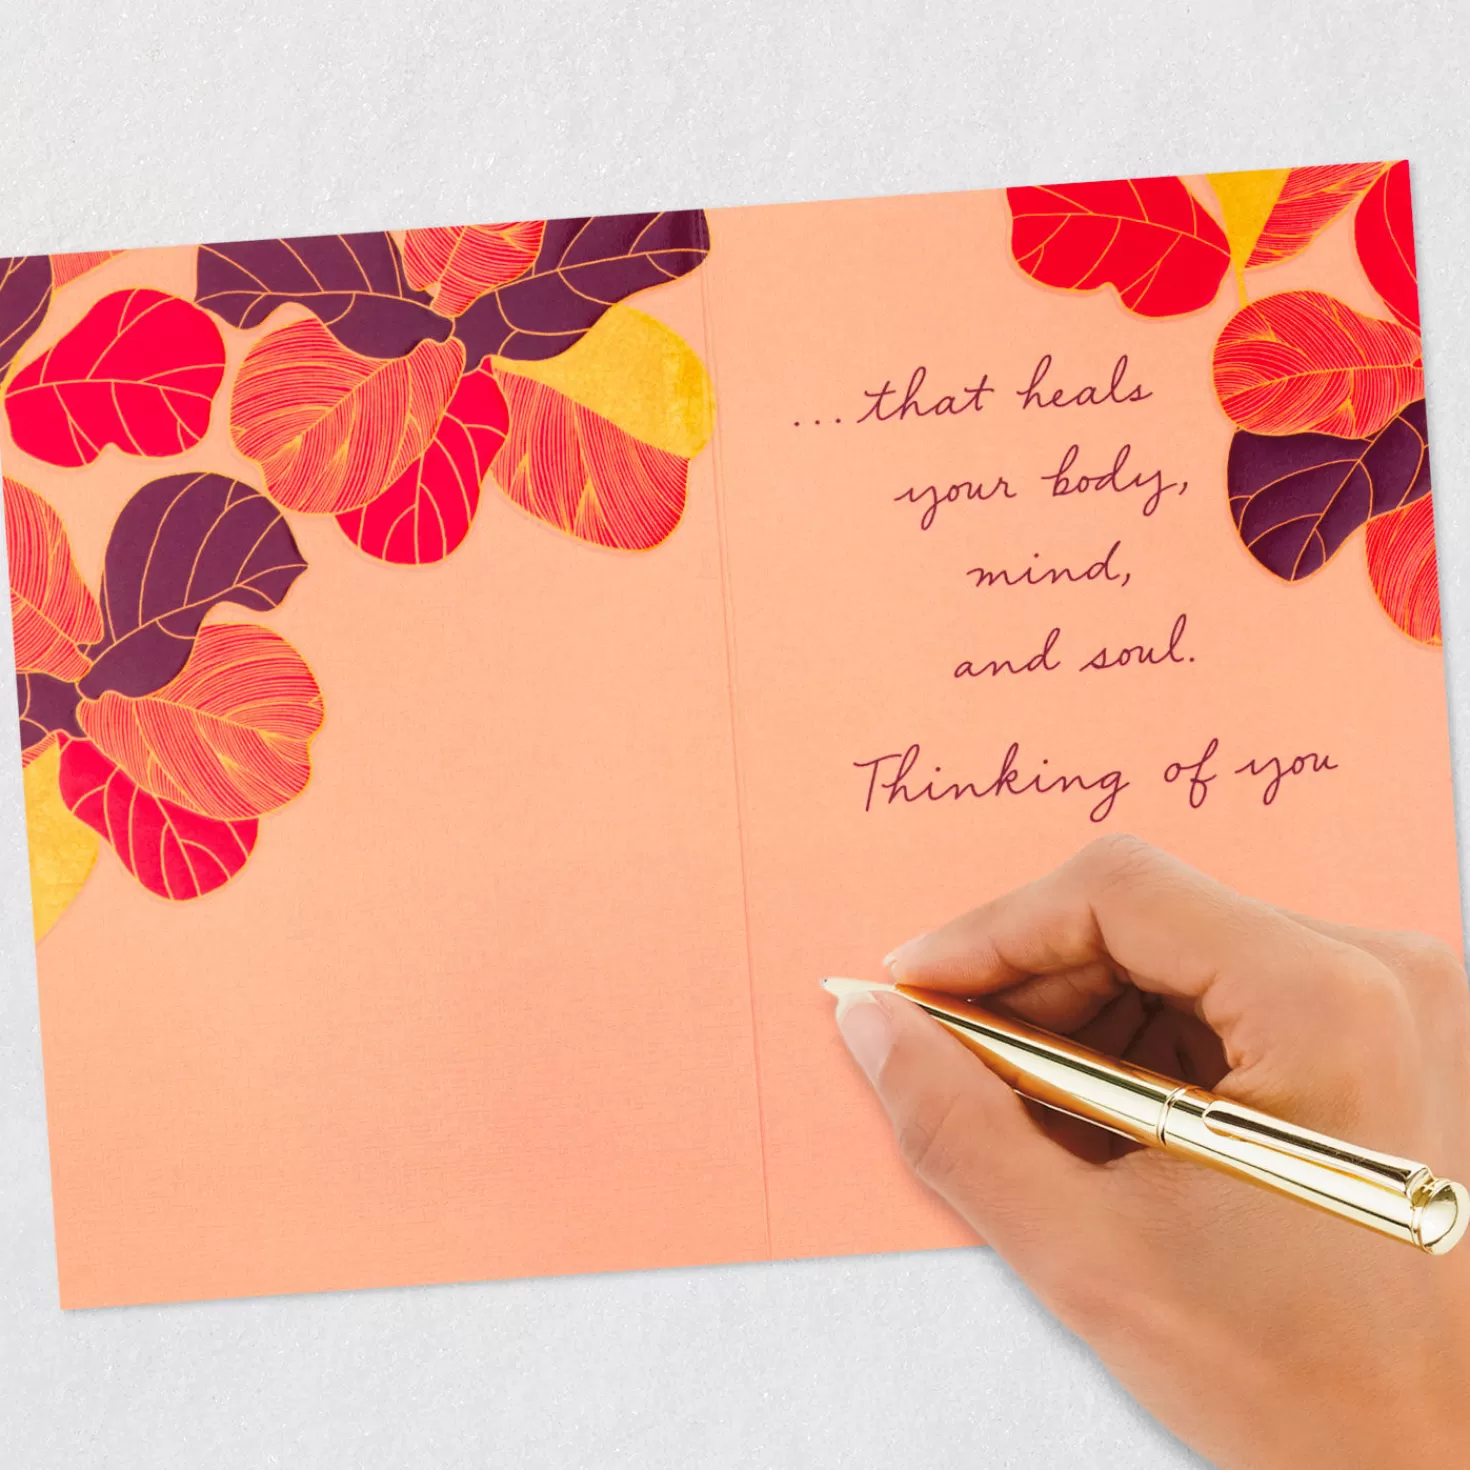 ...that heals
your body,
mind,
and soul.
Thinking of you